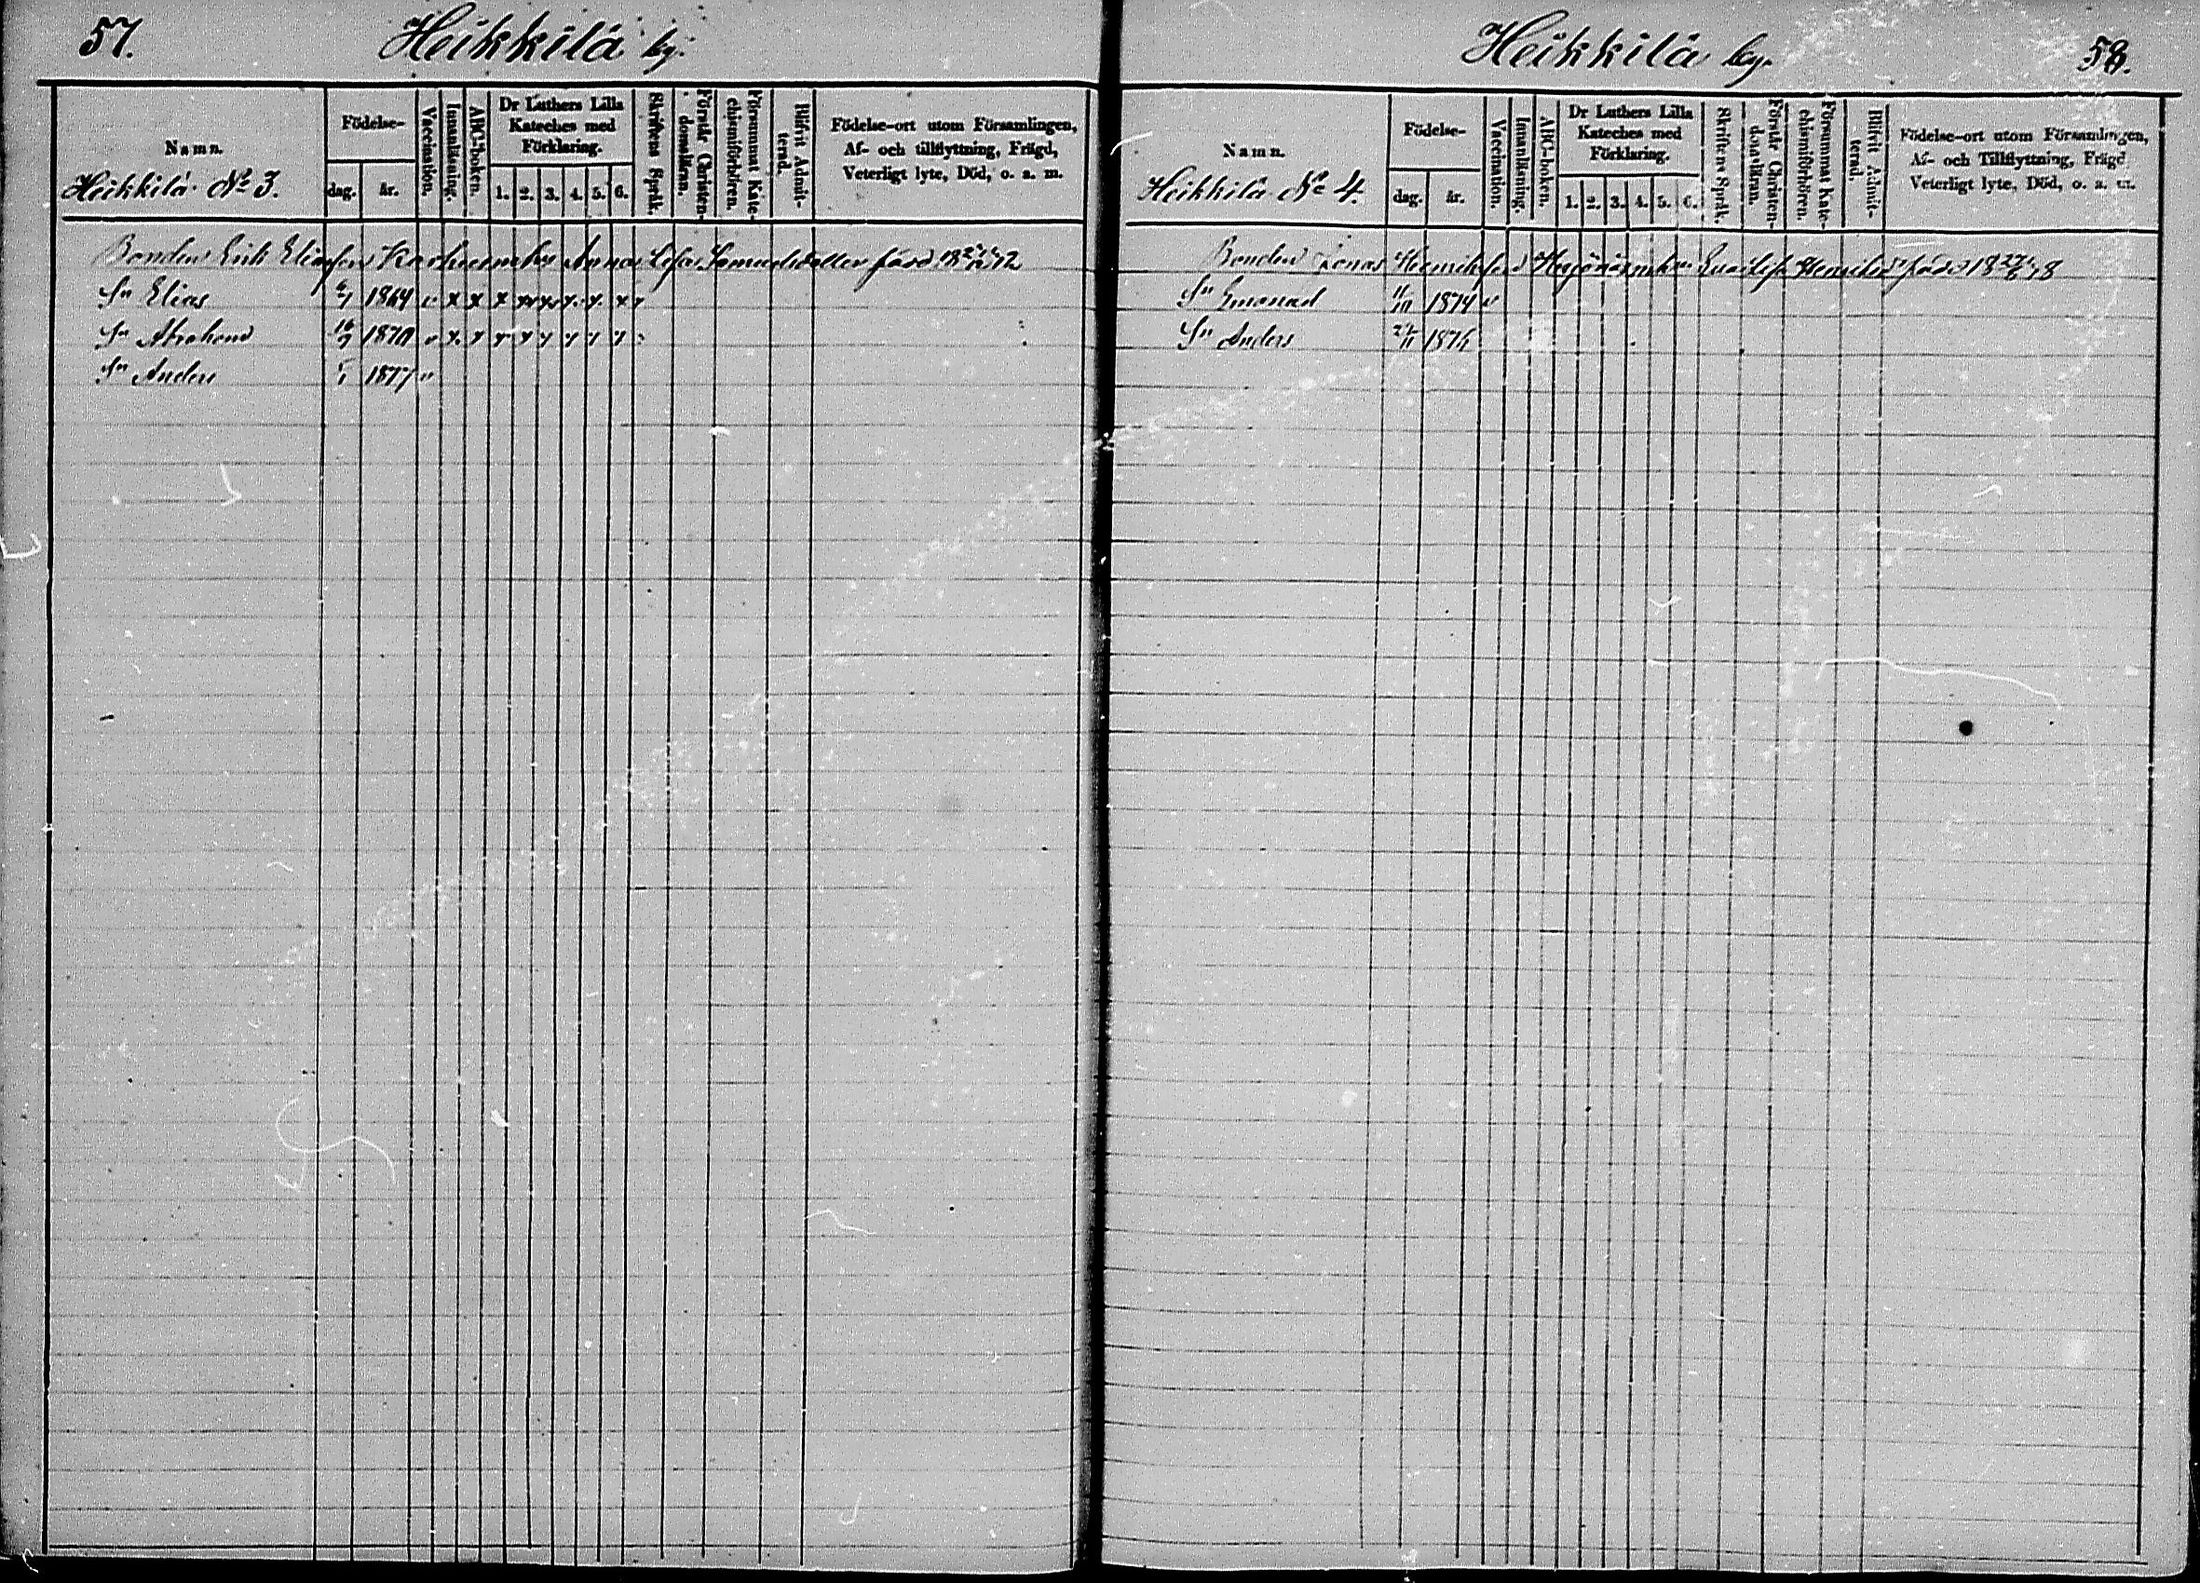 57.
Heikkilä by.
Namn.
Heikkilä No 3.
Födelse-
dag.
år.
Vaccination.
Innanläsning.
ABC-boken.
Dr Luthers Lilla
Kateches med
Förklaring.
1. 2. 3. 4. 5. 6.
Skriftens Språk.
Förstår Christen-
domsläran.
Försummat Kate-
chismiförhören.
Blifvit Admit-
terad.
Födelse-ort utom Församlingen,
Af- och tillflyttning, Frägd,
Veterligt lyte, Död, o. a. m.
Bonden Erik Eliasson Anna Lisa född
Sn Elias 1864 x x x x x x x x
Sn Abraham 1870
Sn Anders 1877
Heikkilä by.
58.
Namn.
Heikkilä No 4.
Födelse-
dag.
år.
Vaccination.
Innanläsning.
ABC-boken.
Dr Luthers Lilla
Kateches med
Förklaring.
1. 2. 3. 4. 5. 6.
Skriftens Språk.
Förstår Christen-
domsläran.
Försummat Kate-
chismiförhören.
Blifvit Admit-
terad.
Födelse-ort utom Församlingen,
Af- och Tillflyttning, Frägd
Veterligt lyte, Död, o. a. m.
Bonden Jonas Lisa född
Sn 11/10 1874
Sn Anders